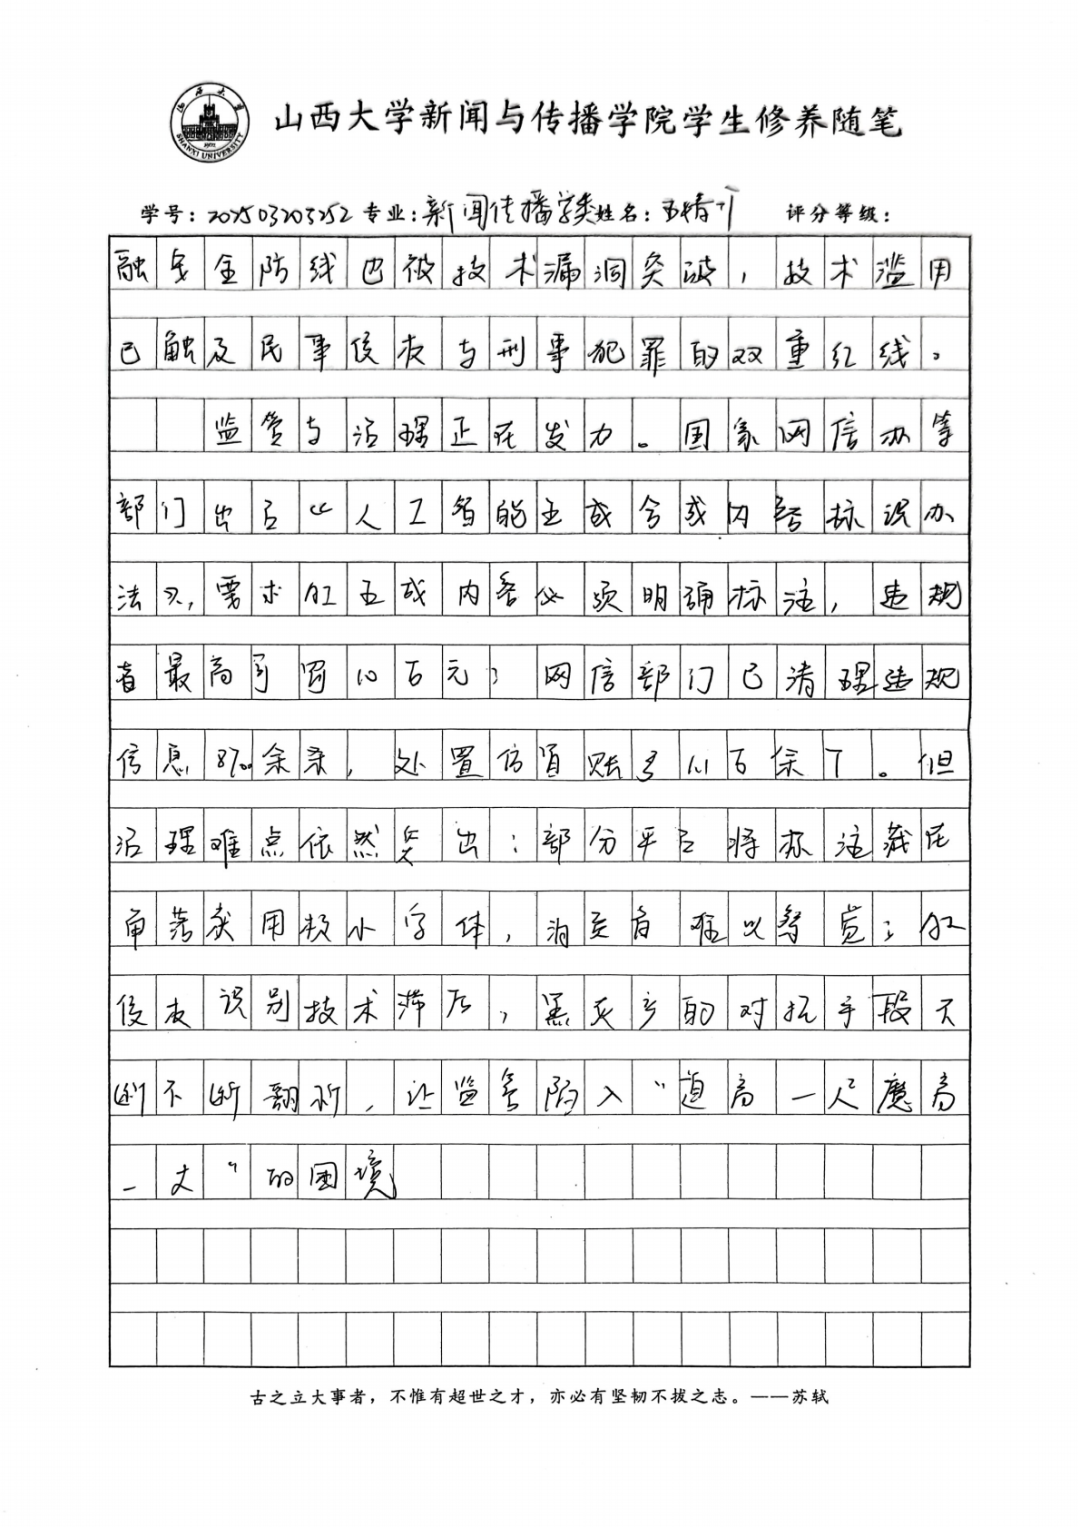 山西大学新闻与传播学院学生修养随笔
SHANXI UNIVERSITY
学号：202503203252 专业：新闻传播学类 姓名： 评分等级：
融安全防线也被技术漏洞突破，技术滥用
已触及民事侵权与刑事犯罪的双重红线。
监管与治理正在发力。国家网信办等
部门出台《人工智能生成合成内容标识办
法》，需求AI生成内容必须明确标注，违规
者最高可罚10百元；网信部门已清理违规
信息8700余条，处置仿冒账号1.1万余个。但
治理难点依然突出：部分平台将标注藏在
角落或用极小字体，消费者难以察觉；AI
侵权识别技术滞后，黑灰产的对抗手段不
断不断翻新，让监管陷入“道高一尺魔高
一丈”的困境
古之立大事者，不惟有超世之才，亦必有坚韧不拔之志。——苏轼